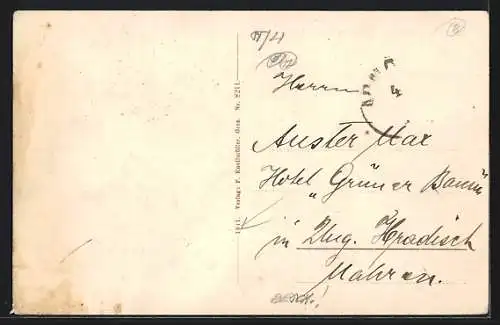 Herrn
Auster Max
Hotel „Grüner Baum"
in Ung. Hradisch
Mähren.
1911 Verlag: F. Gera. Nr. 8211.